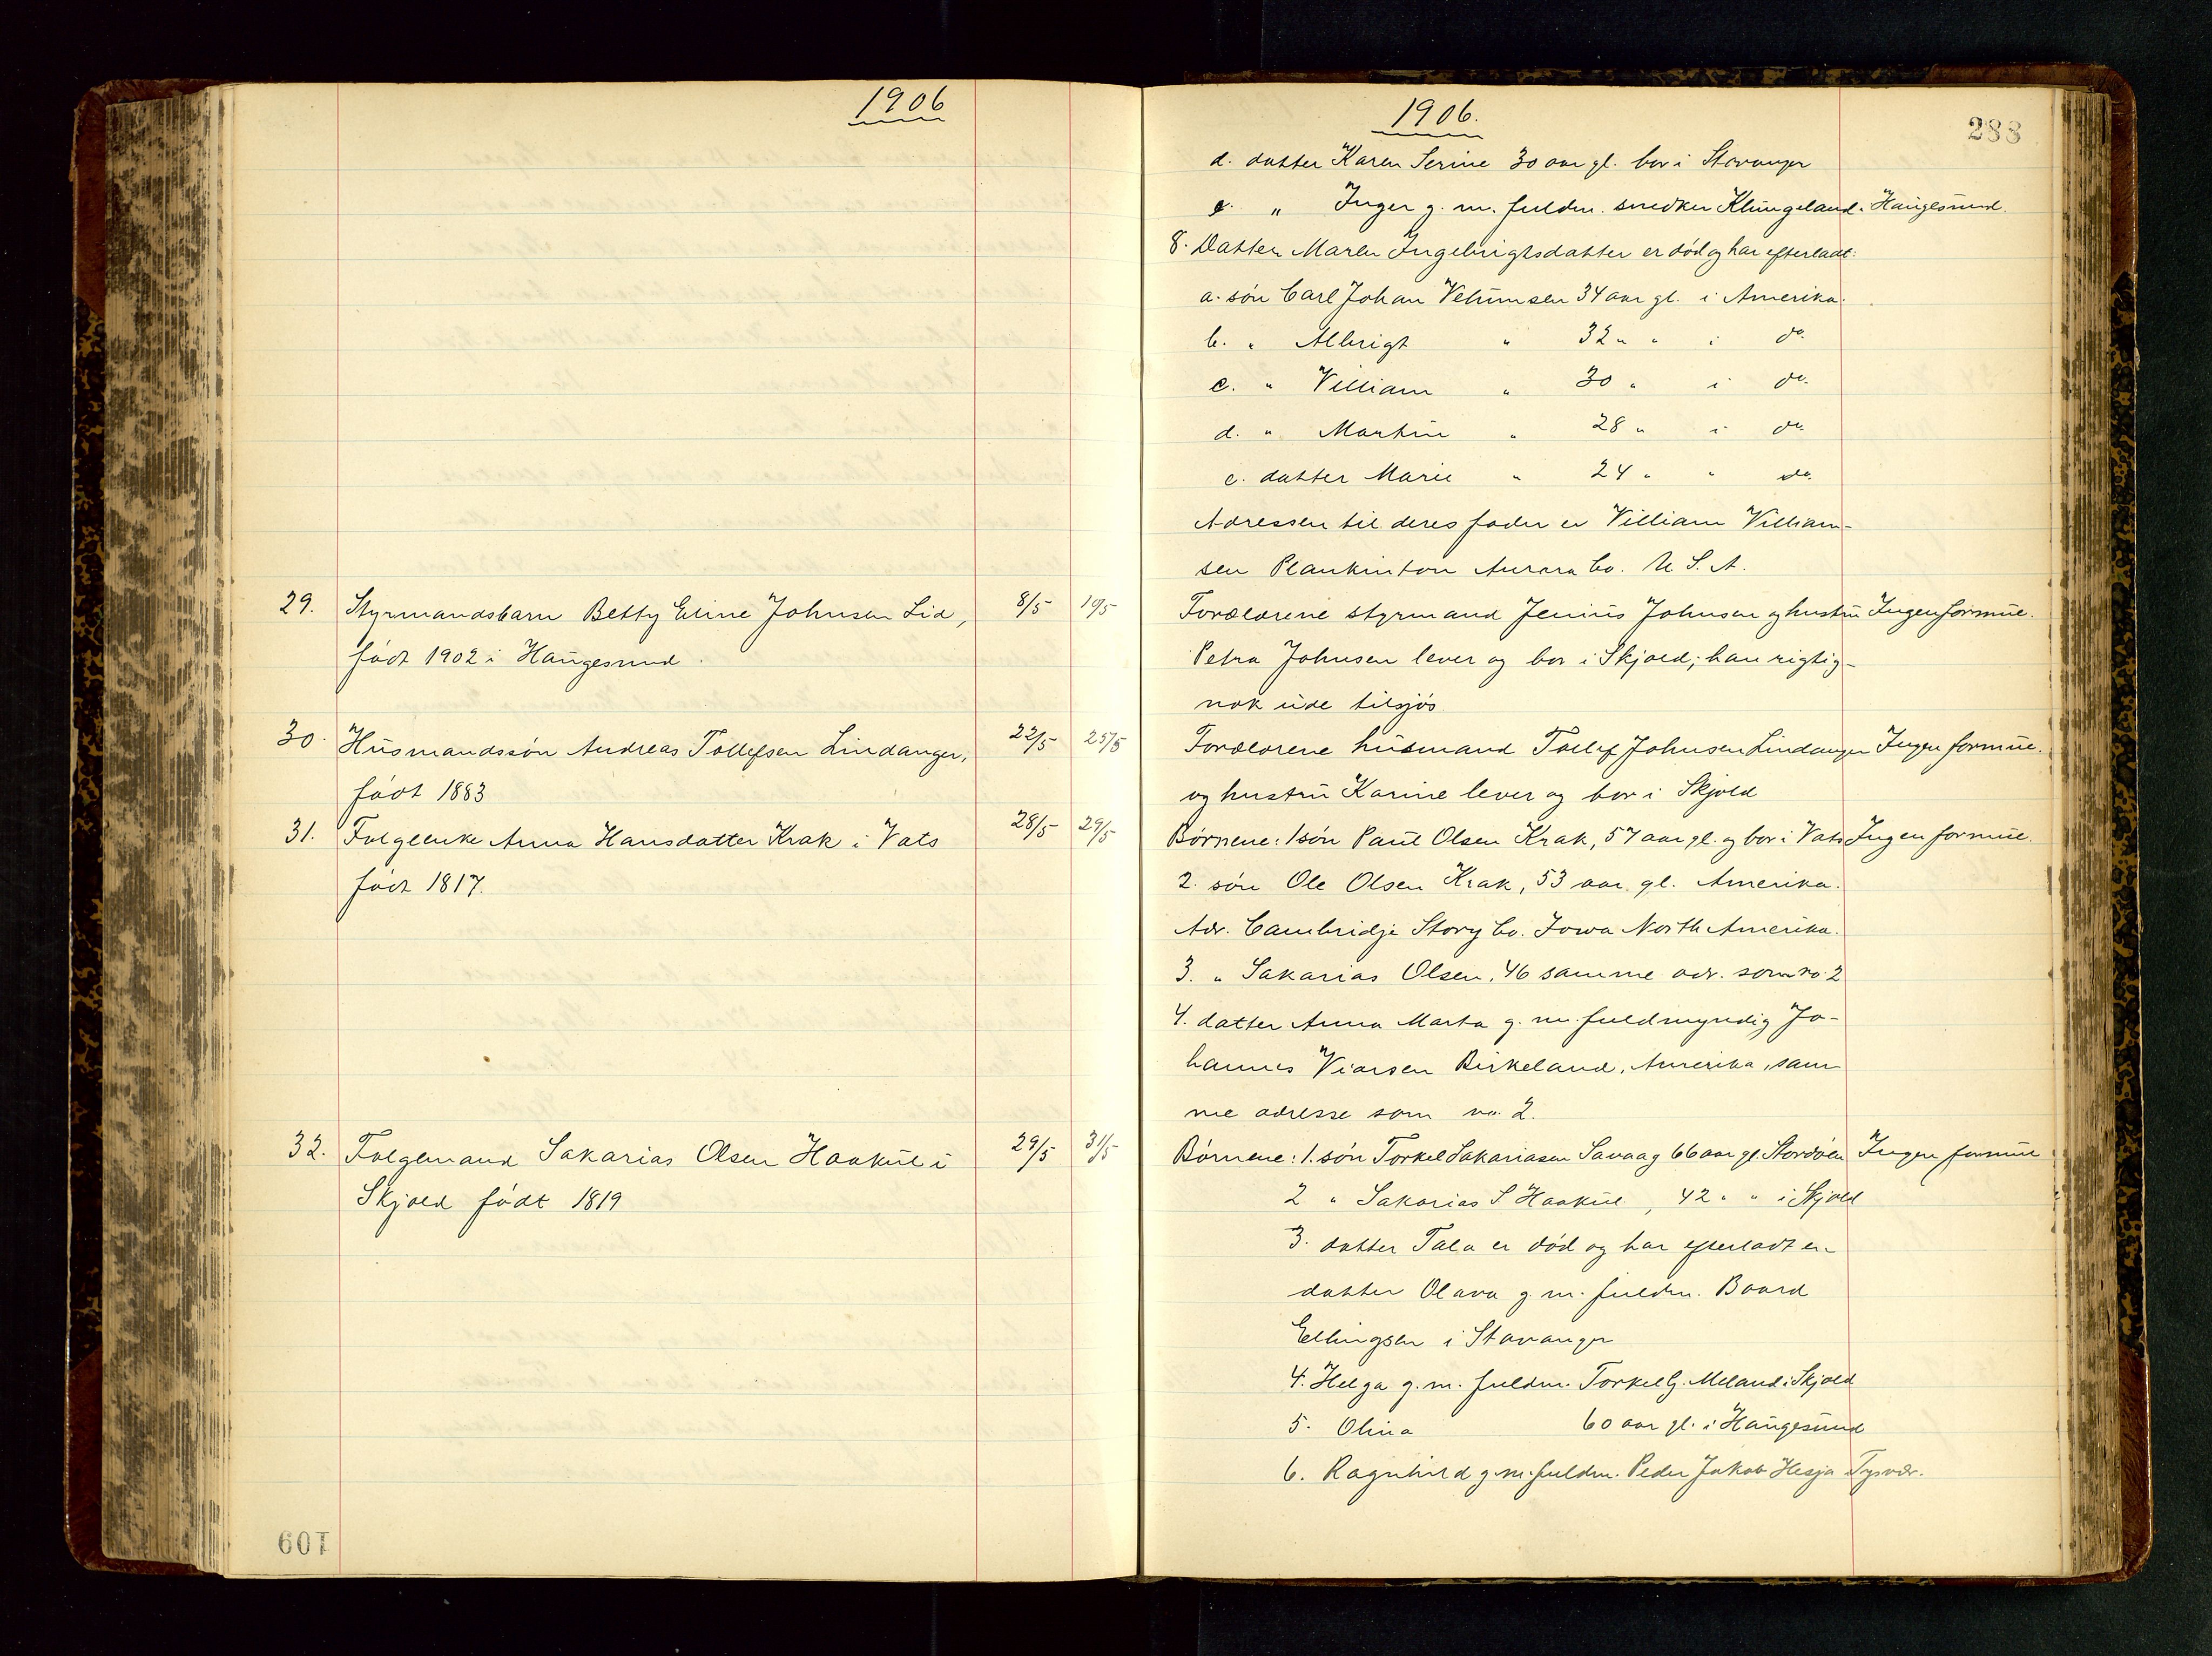 1906
29. Styrmandsbarn Betty Eline Johnsen Lid, 8/5 19/5
født 1902 i Haugesund.
30. Husmandssøn Andreas Tollefsen Lindanger, 22/5 25/5
født 1883
31. Folgeenke Anna Hansdatter Krak i Vats 28/5 29/5
født 1817.
32. Folgemand Sakarias Olsen Haakul i 29/5 31/5
Skjold født 1819
601
1906.
288
d. datter Karen Serine 30 aar gl. bor i Stavanger
e. " Inger g. m. fuldm. snedker Klungeland i Haugesund.
8. Datter Maren Ingebrigtsdatter er død og har efterladt:
a. søn Carl Johan Velumsen 34 aar gl. i Amerika.
b. " Albrigt " 32 " " i do.
c. " Villiam " 30 " i do.
d. " Martin " 28 " i do.
e. datter Marie " 24 " " do.
Adressen til deres fader er Villiam Villiam-
sen Plankinton Aurora Co. U. S. A.
Forældrene styrmand Jenius Johnsen og hustru Ingen formue.
Petra Johnsen lever og bor i Skjold; han rigtig-
nok ude tilsjøs
Forældrene husmand Tollef Johnsen Lindanger Ingen formue.
og hustru Karine lever og bor i Skjold
Børnene: 1 søn Paul Olsen Krak, 57 aar gl. og bor i Vats Ingen formue.
2. søn Ole Olsen Krak, 53 aar gl. Amerika.
Adr. Cambridje Story Co. Iowa North Amerika.
3. " Sakarias Olsen, 46 samme adr. som no. 2
4. datter Anna Marta g. m. fuldmyndig Jo-
hannes Viarsen Birkeland, Amerika, sam-
me adresse som no. 2.
Børnene: 1. søn Torkel Sakariasen Savaag 66 aar gl. Stordøen Ingen formue
2 " Sakarias S. Haakul, 42 " " i Skjold
3. datter Tala er død og har efterladt en
datter Olava g. m. fuldm. Baard
Ellingsen i Stavanger
4. Helga g. m. fuldm. Torkel G. Meland i Skjold
5. Olina 60 aar gl. i Haugesund
6. Ragnhild g. m. fuldm. Peder Jakob Hesja Tysvær.